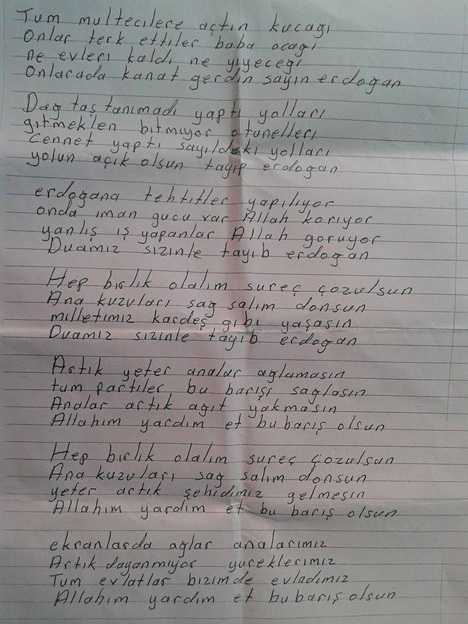 Tum multecılere açtın kucağı
Onlar terk ettıler baba ocağı
ne evlerı kaldı ne yıyeceğı
Onlarada kanat gerdın sayın erdoğan
Dağ taş tanımadı yaptı yolları
gıtmeklen bıtmıyor otunellerı
Cennet yaptı sayıldekı yolları
yolun açık olsun tayıp erdoğan
erdoğana tehtıtler yapılıyor
onda ıman gucu var Allah karıyor
yanlış ış yapanlar Allah goruyor
Duamız sızınle tayıb erdoğan
Hep bırlık olalım sureç çozulsun
Ana kuzuları sağ salım donsun
mılletımız kardeş gıbı yaşasın
Duamız sızınle tayıb erdoğan
Artık yeter analar ağlamasın
tum partıler bu barışı sağlasın
Analar artık ağıt yakmasın
Allahım yardım et bu barış olsun
Hep bırlık olalım sureç çozulsun
Ana kuzuları sağ salım donsun
yeter artık şehıdımız gelmesın
Allahım yardım et bu barış olsun
ekranlarda ağlar analarımız
Artık dayanmıyor yureklerımız
Tum evlatlar bızımde evladımız
Allahım yardım et bu barış olsun